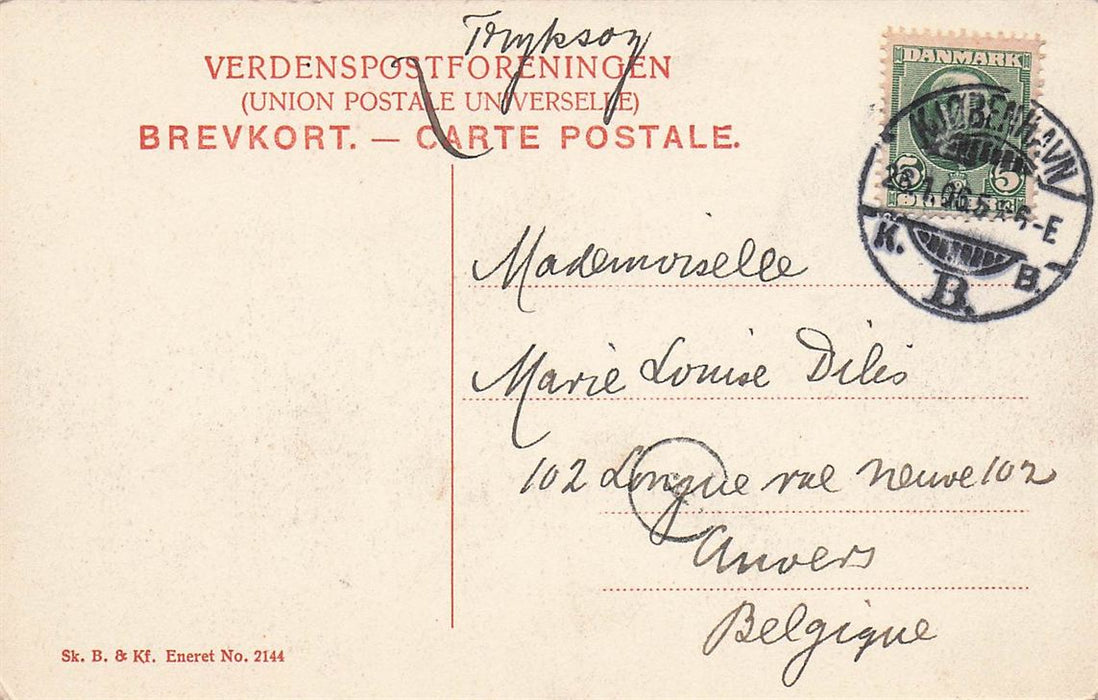 Tryksag
VERDENSPOSTFORENINGEN
(UNION POSTALE UNIVERSELLE)
BREVKORT. — CARTE POSTALE.
DANMARK
5 5
ØRE
KJØBENHAVN
K. B.
B.
Mademoiselle
Marie Louise Dilis
102 Longue rue neuve 102
Anvers
Belgique
Sk. B. & Kf. Eneret No. 2144